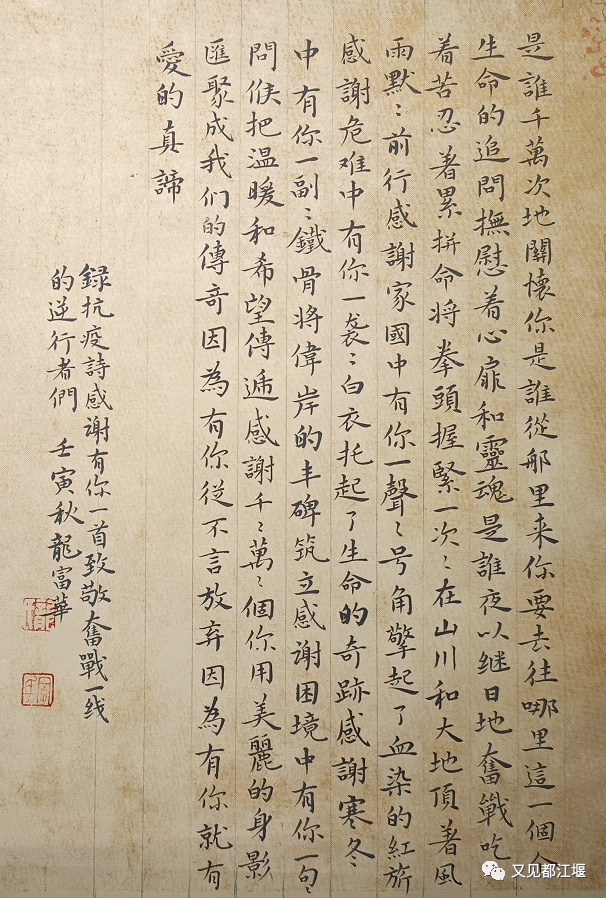 是誰千萬次地關懷你是誰從那里来你要去往哪里這一個个
生命的追問撫慰着心扉和靈魂是誰夜以继日地奮戰吃
着苦忍着累拼命将拳頭握緊一次〻在山川和大地頂著風
雨默〻前行感謝家國中有你一聲〻号角擎起了血染的紅旂
感謝危难中有你一袭〻白衣托起了生命的奇跡感謝寒冬
中有你一副〻鐵骨将偉岸的丰碑筑立感謝困境中有你一句〻
問候把温暖和希望傳遞感謝千〻萬〻個你用美麗的身影
匯聚成我们的傳奇因為有你從不言放弃因為有你就有
愛的真諦
録抗疫詩感謝有你一首致敬奮戰一线
的逆行者們 壬寅秋龍富華
又见都江堰